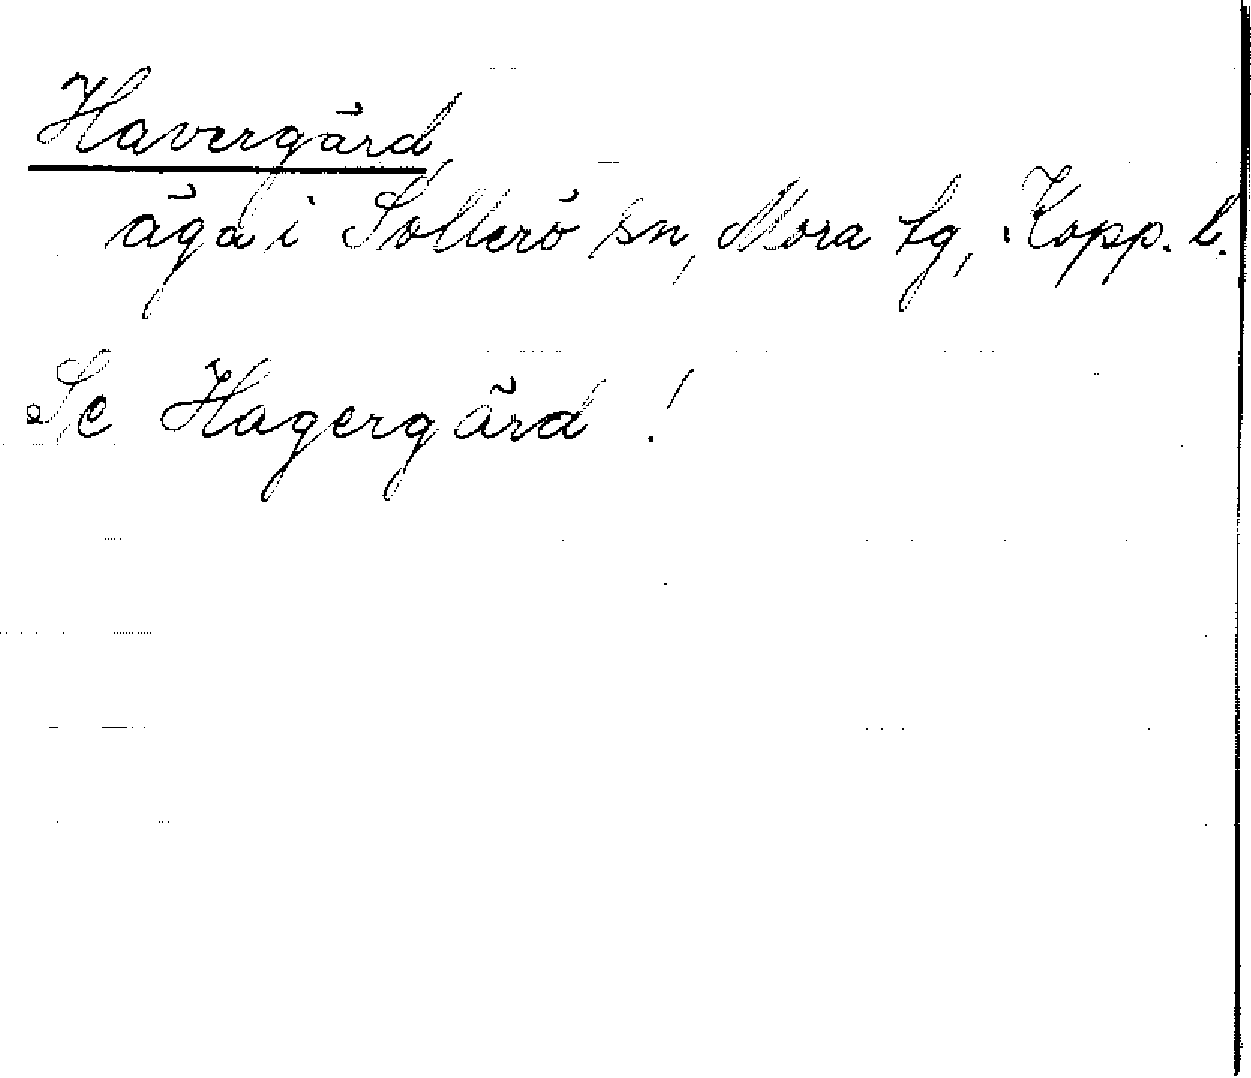 Havergård
äga i Sollerö sn, Mora tg, Kopp. l.
Se Hagergård!